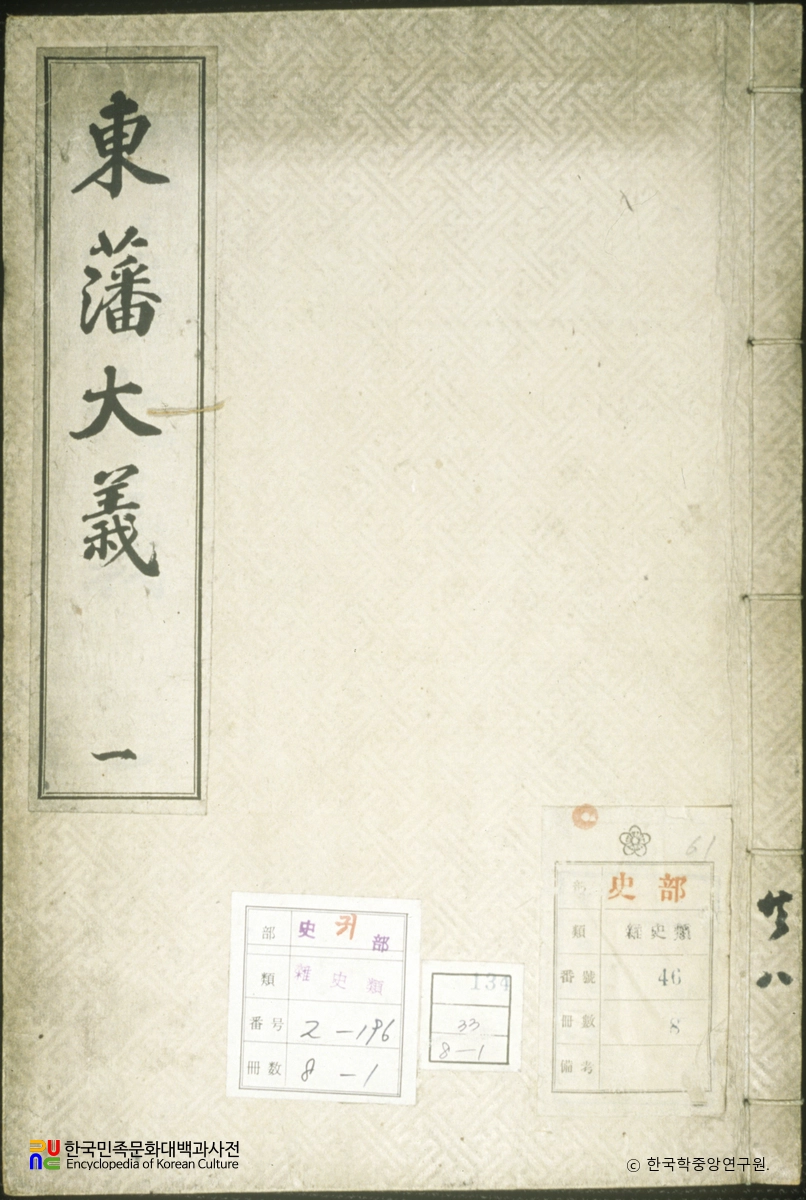 東藩大義
一
共八
史 귀 部
部
類 雜史類
番号 2-196
冊数 8-1
134
33
8-1
61
部 史部
類 雜史類
番號 46
冊數 8
備考
한국민족문화대백과사전
Encyclopedia of Korean Culture
ⓒ 한국학중앙연구원.